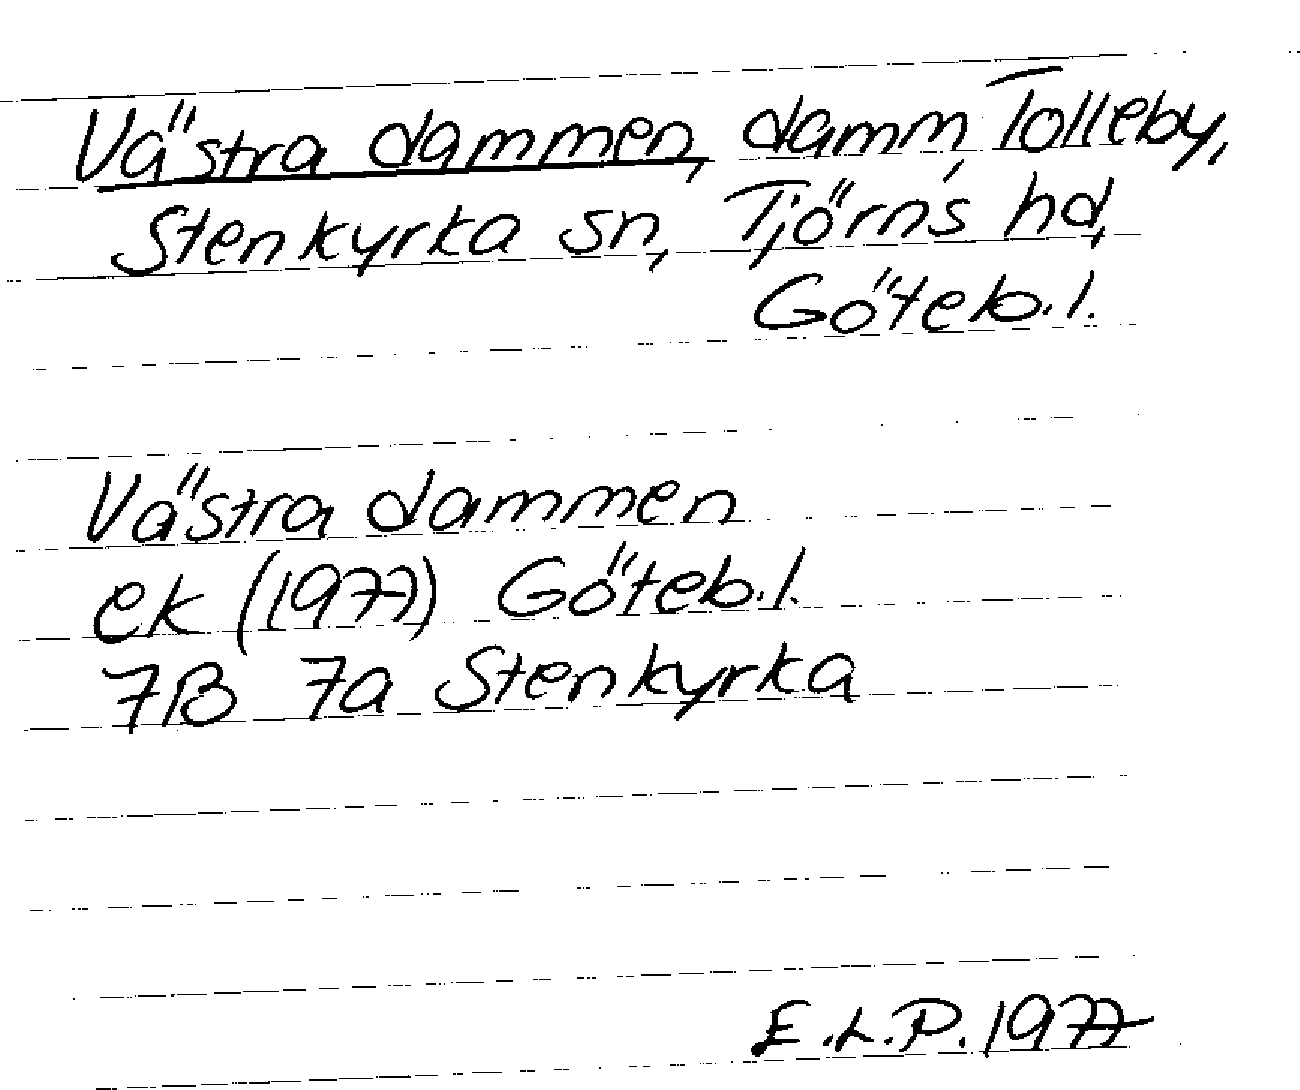 Västra dammen, damm, Tolleby,
Stenkyrka sn, Tjörns hd,
Göteb.l.
Västra dammen
ek (1977) Göteb.l.
7B 7a Stenkyrka
E.L.P. 1977